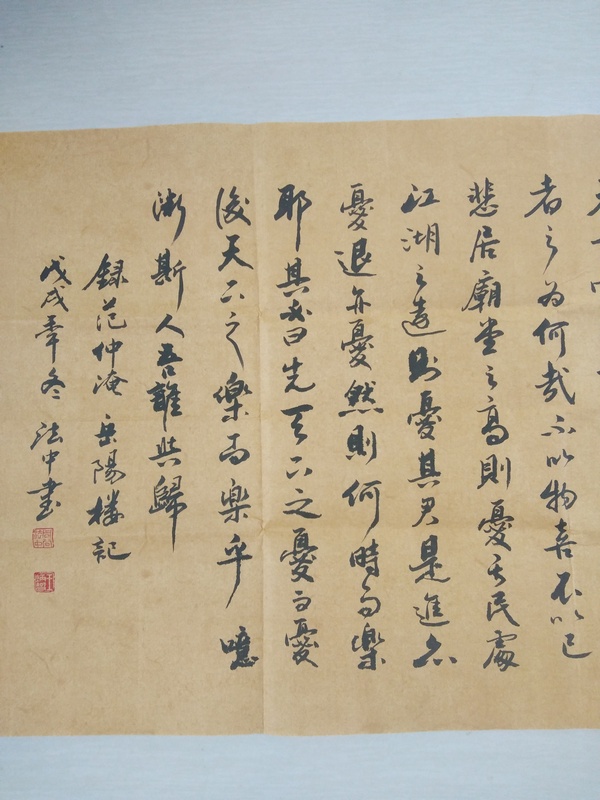 者之為何哉不以物喜不以己
悲居廟堂之高則憂其民處
江湖之遠則憂其君是進亦
憂退亦憂然則何時而樂
耶其必曰先天下之憂而憂
後天下之樂而樂乎噫
微斯人吾誰與歸
録范仲淹岳陽楼記
戊戌年冬 法中書